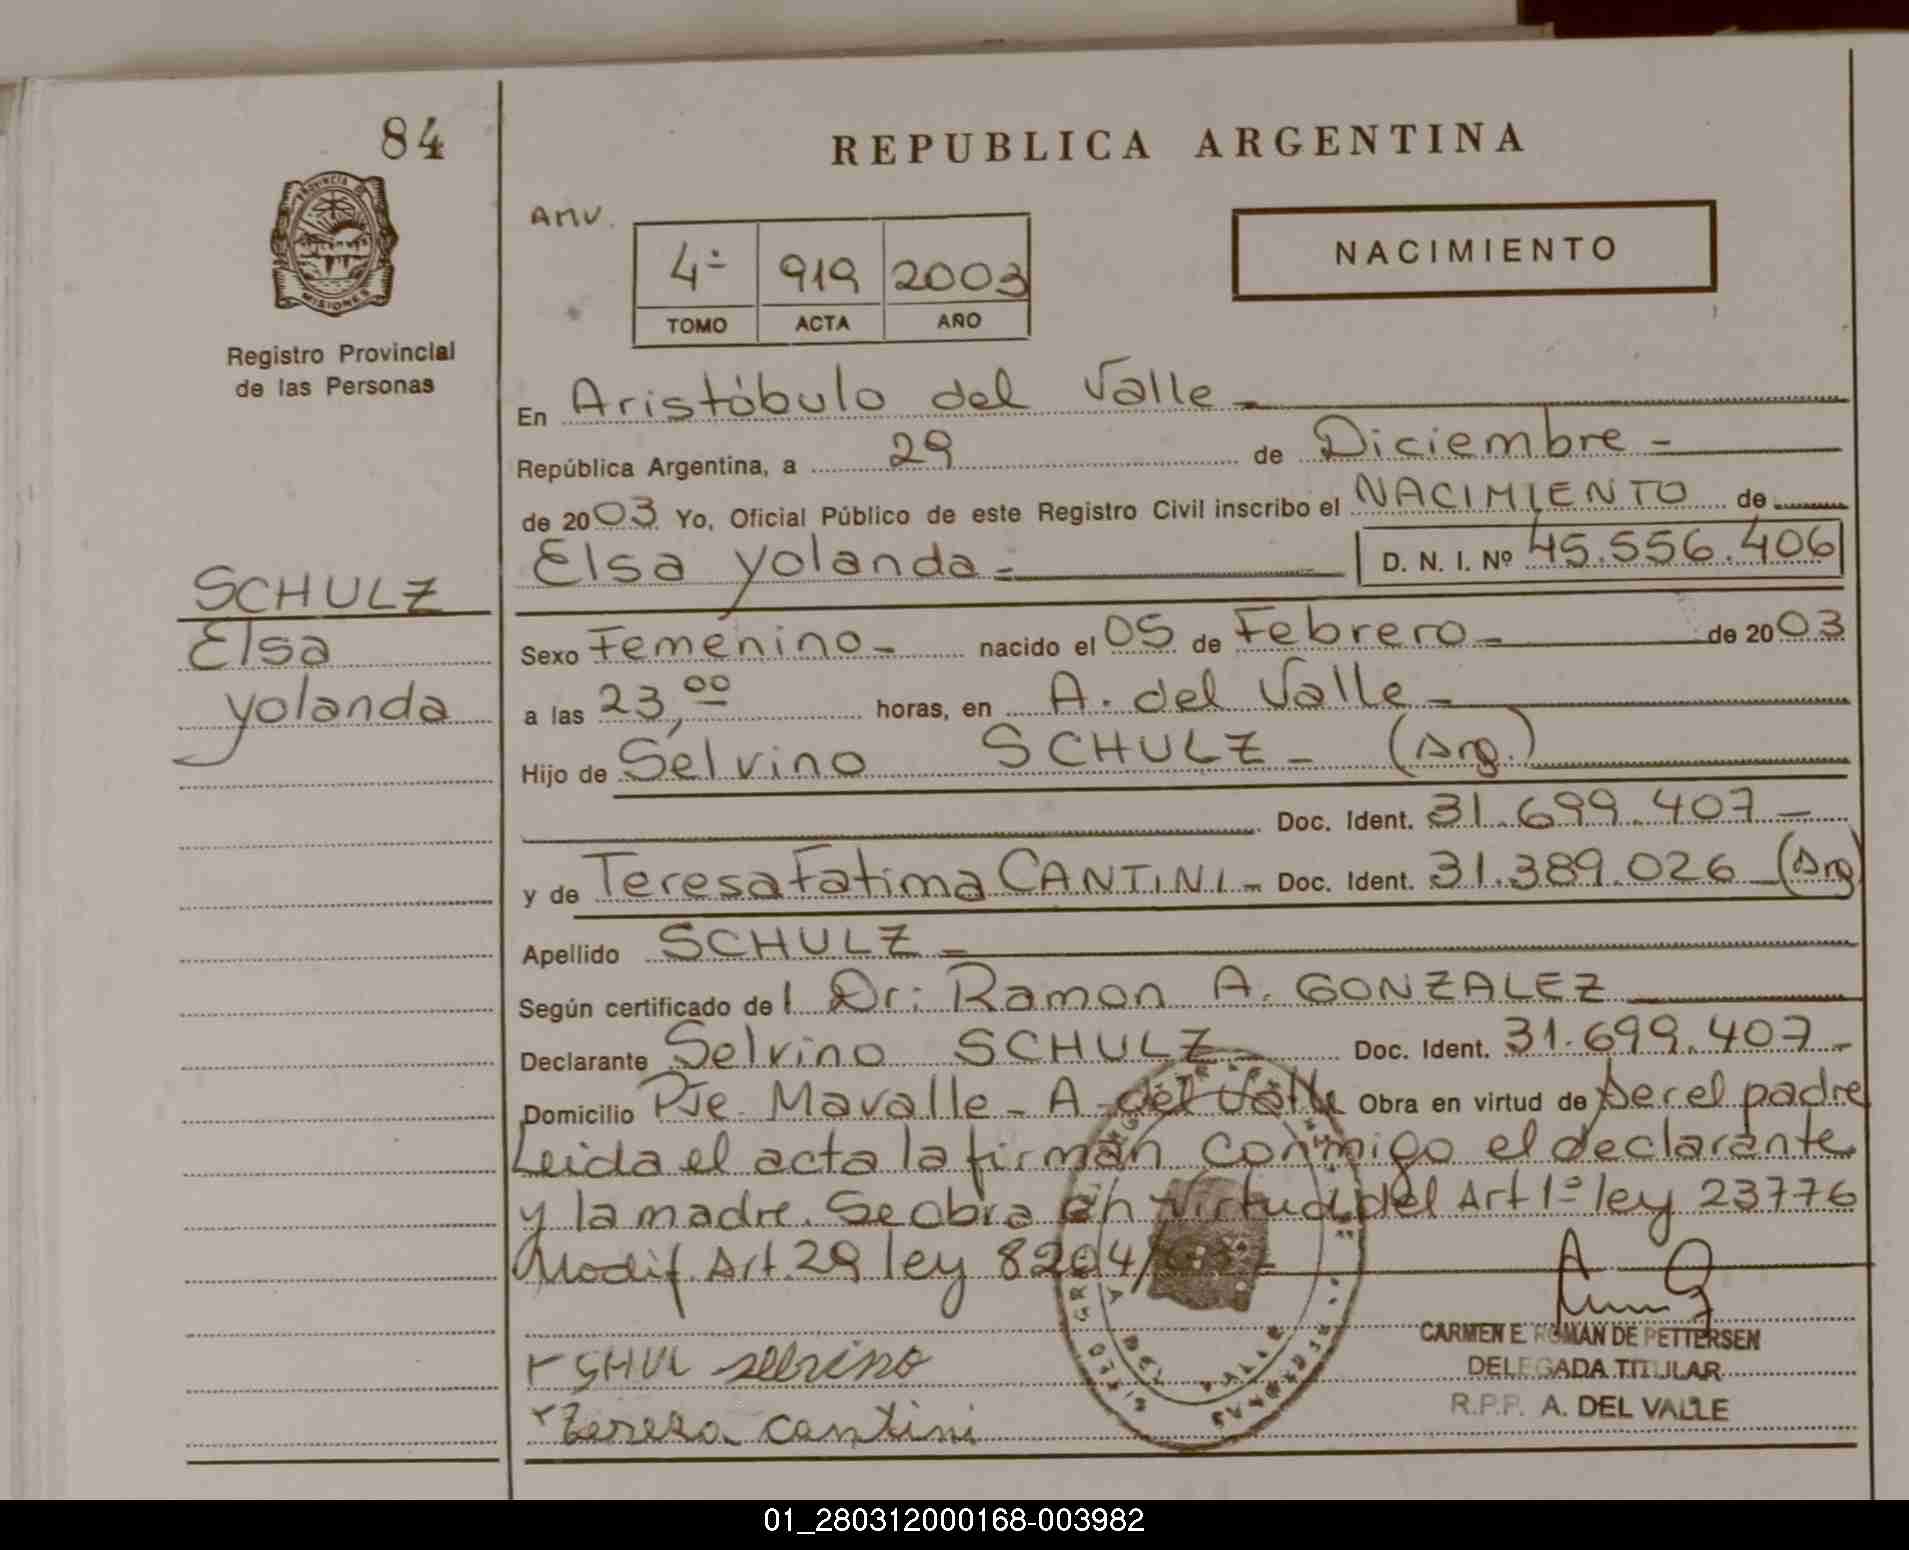 84
PROVINCIA DE
MISIONES
Registro Provincial
de las Personas
SCHULZ
Elsa
yolanda
REPUBLICA ARGENTINA
Anv.
4º 919 2003
TOMO ACTA AÑO
NACIMIENTO
En Aristóbulo del Valle -
República Argentina, a 29 de Diciembre -
de 2003 Yo, Oficial Público de este Registro Civil inscribo el NACIMIENTO de
Elsa yolanda - D. N. I. Nº 45.556.406
Sexo Femenino - nacido el 05 de Febrero - de 2003
a las 23,00 horas, en A. del Valle -
Hijo de Selvino SCHULZ - (Arg.)
Doc. Ident. 31.699.407 -
y de Teresa Fatima CANTINI - Doc. Ident. 31.389.026 (Arg)
Apellido SCHULZ -
Según certificado del Dr: Ramon A. GONZALEZ
Declarante Selvino SCHULZ - Doc. Ident. 31.699.407 -
Domicilio Pje. Mavalle - A. del Valle Obra en virtud de ser el padre
Leida el acta la firman conmigo el declarante
y la madre. Se obra en virtud del Art 1º ley 23776
Modif. Art. 29 ley 8204/
SHUL selvino
Teresa cantini
CARMEN E. ROMAN DE PETTERSEN
DELEGADA TITULAR
R.P.P. A. DEL VALLE
01_280312000168-003982